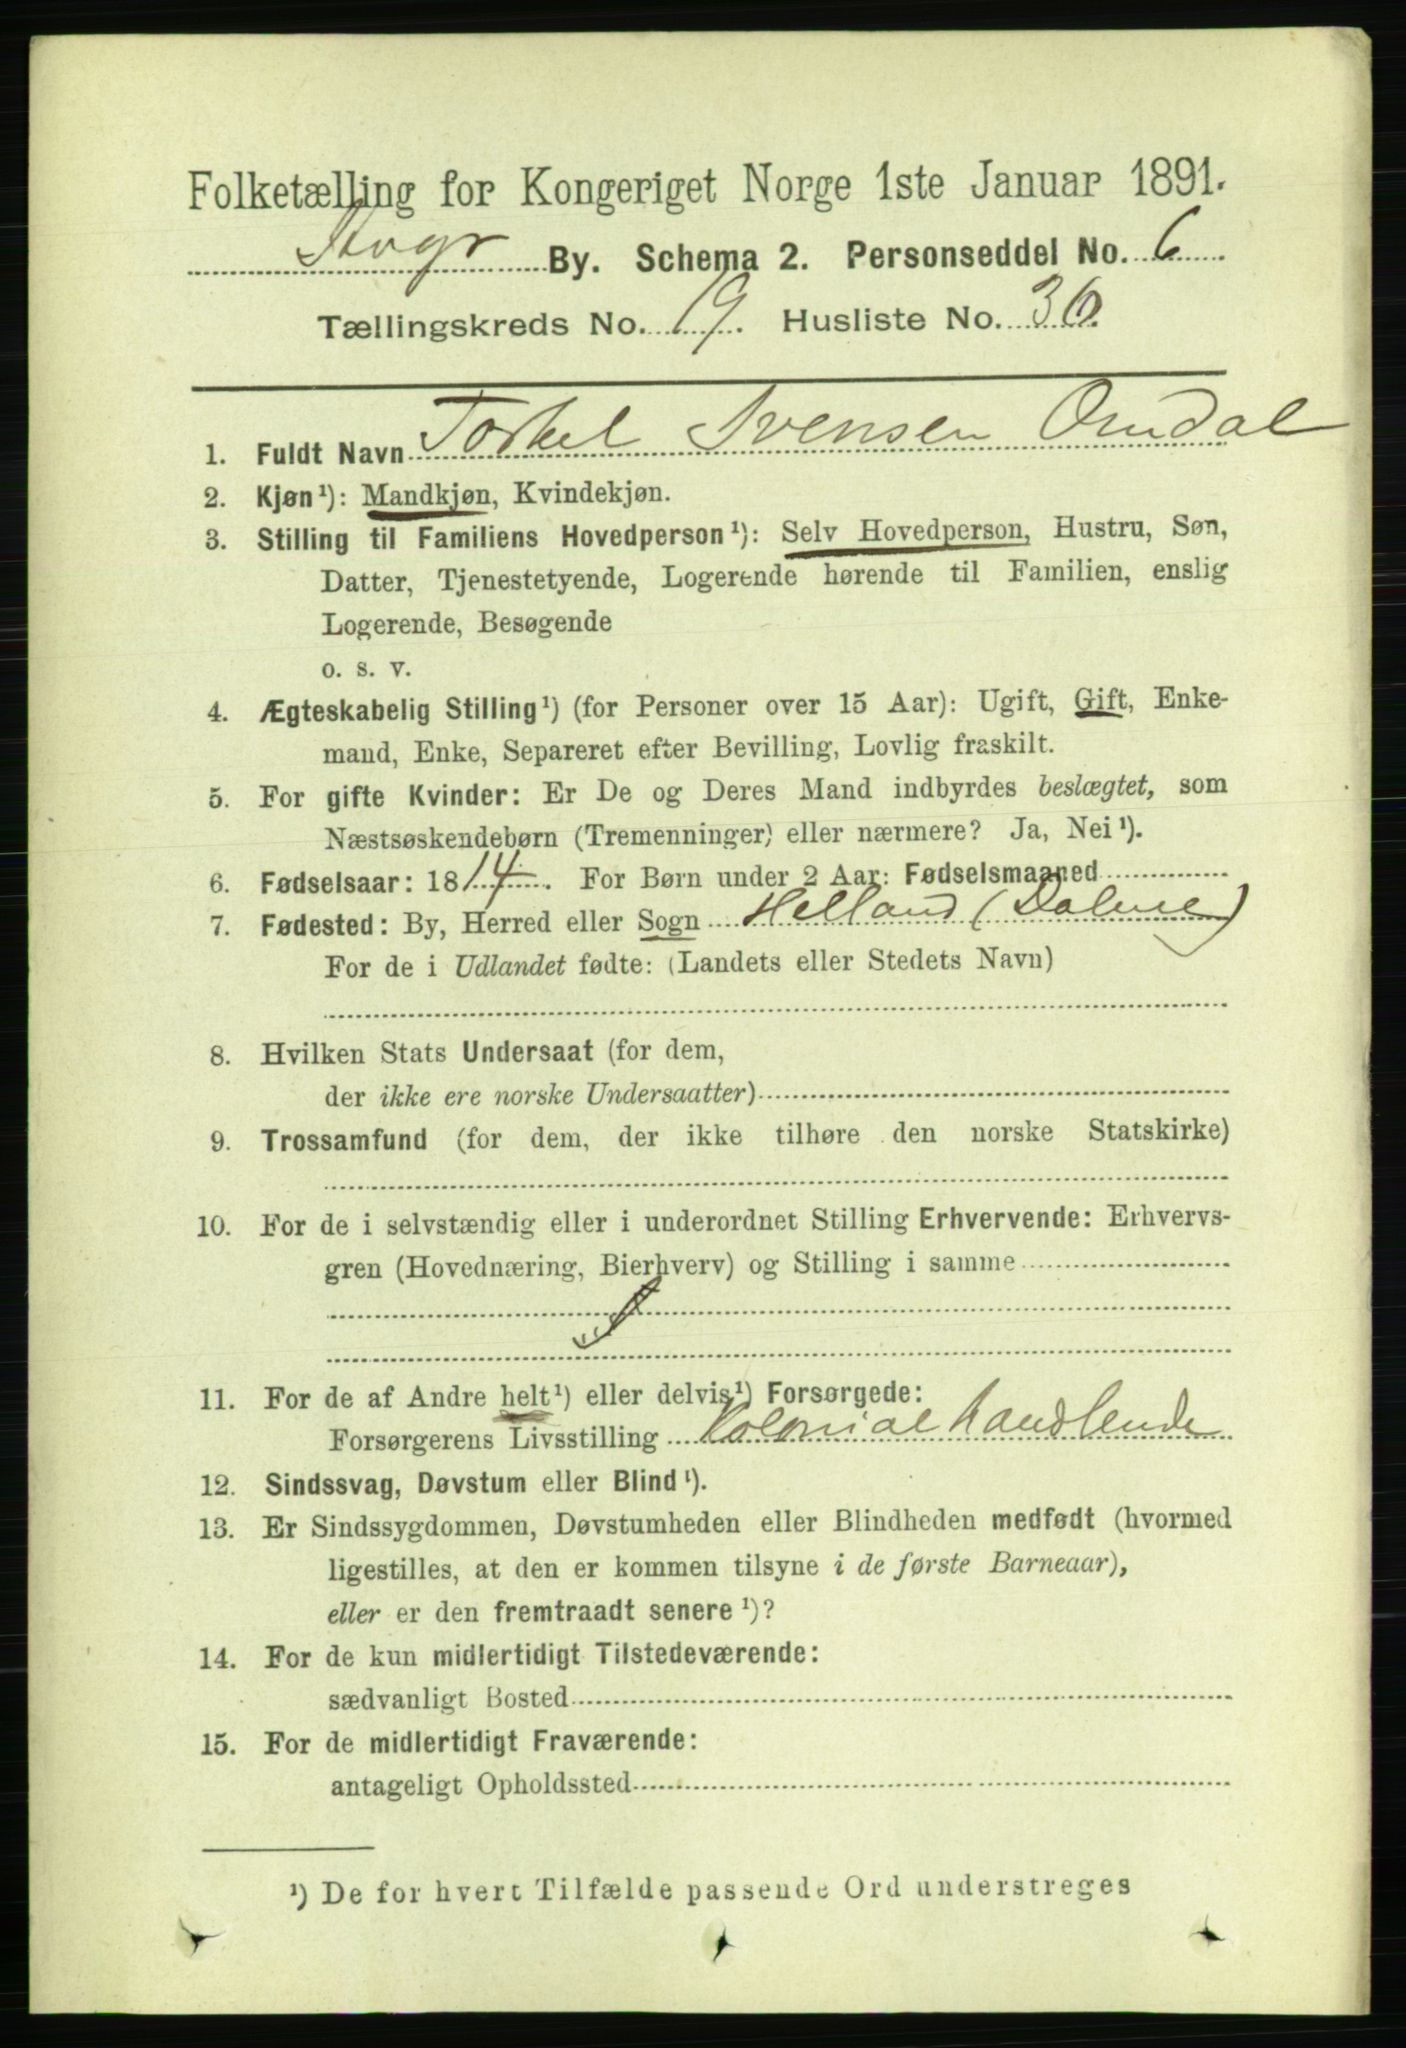 Folketælling for Kongeriget Norge 1ste Januar 1891.
Stvgr By. Schema 2. Personseddel No. 6
Tællingskreds No. 19. Husliste No. 36.
1. Fuldt Navn Torkel Svensen Omdal
2. Kjøn¹): Mandkjøn, Kvindekjøn.
3. Stilling til Familiens Hovedperson¹): Selv Hovedperson, Hustru, Søn,
Datter, Tjenestetyende, Logerende hørende til Familien, enslig
Logerende, Besøgende
o. s. v.
4. Ægteskabelig Stilling¹) (for Personer over 15 Aar): Ugift, Gift, Enke-
mand, Enke, Separeret efter Bevilling, Lovlig fraskilt.
5. For gifte Kvinder: Er De og Deres Mand indbyrdes beslægtet, som
Næstsøskendebørn (Tremenninger) eller nærmere? Ja, Nei¹).
6. Fødselsaar: 1814. For Børn under 2 Aar: Fødselsmaaned
7. Fødested: By, Herred eller Sogn Helland (Dalene)
For de i Udlandet fødte: (Landets eller Stedets Navn)
8. Hvilken Stats Undersaat (for dem,
der ikke ere norske Undersaatter)
9. Trossamfund (for dem, der ikke tilhøre den norske Statskirke)
10. For de i selvstændig eller i underordnet Stilling Erhvervende: Erhvervs-
gren (Hovednæring, Bierhverv) og Stilling i samme
11. For de af Andre helt¹) eller delvis¹) Forsørgede:
Forsørgerens Livsstilling Kolonialhandlende
12. Sindssvag, Døvstum eller Blind¹).
13. Er Sindssygdommen, Døvstumheden eller Blindheden medfødt (hvormed
ligestilles, at den er kommen tilsyne i de første Barneaar),
eller er den fremtraadt senere¹)?
14. For de kun midlertidigt Tilstedeværende:
sædvanligt Bosted
15. For de midlertidigt Fraværende:
antageligt Opholdssted
¹) De for hvert Tilfælde passende Ord understreges